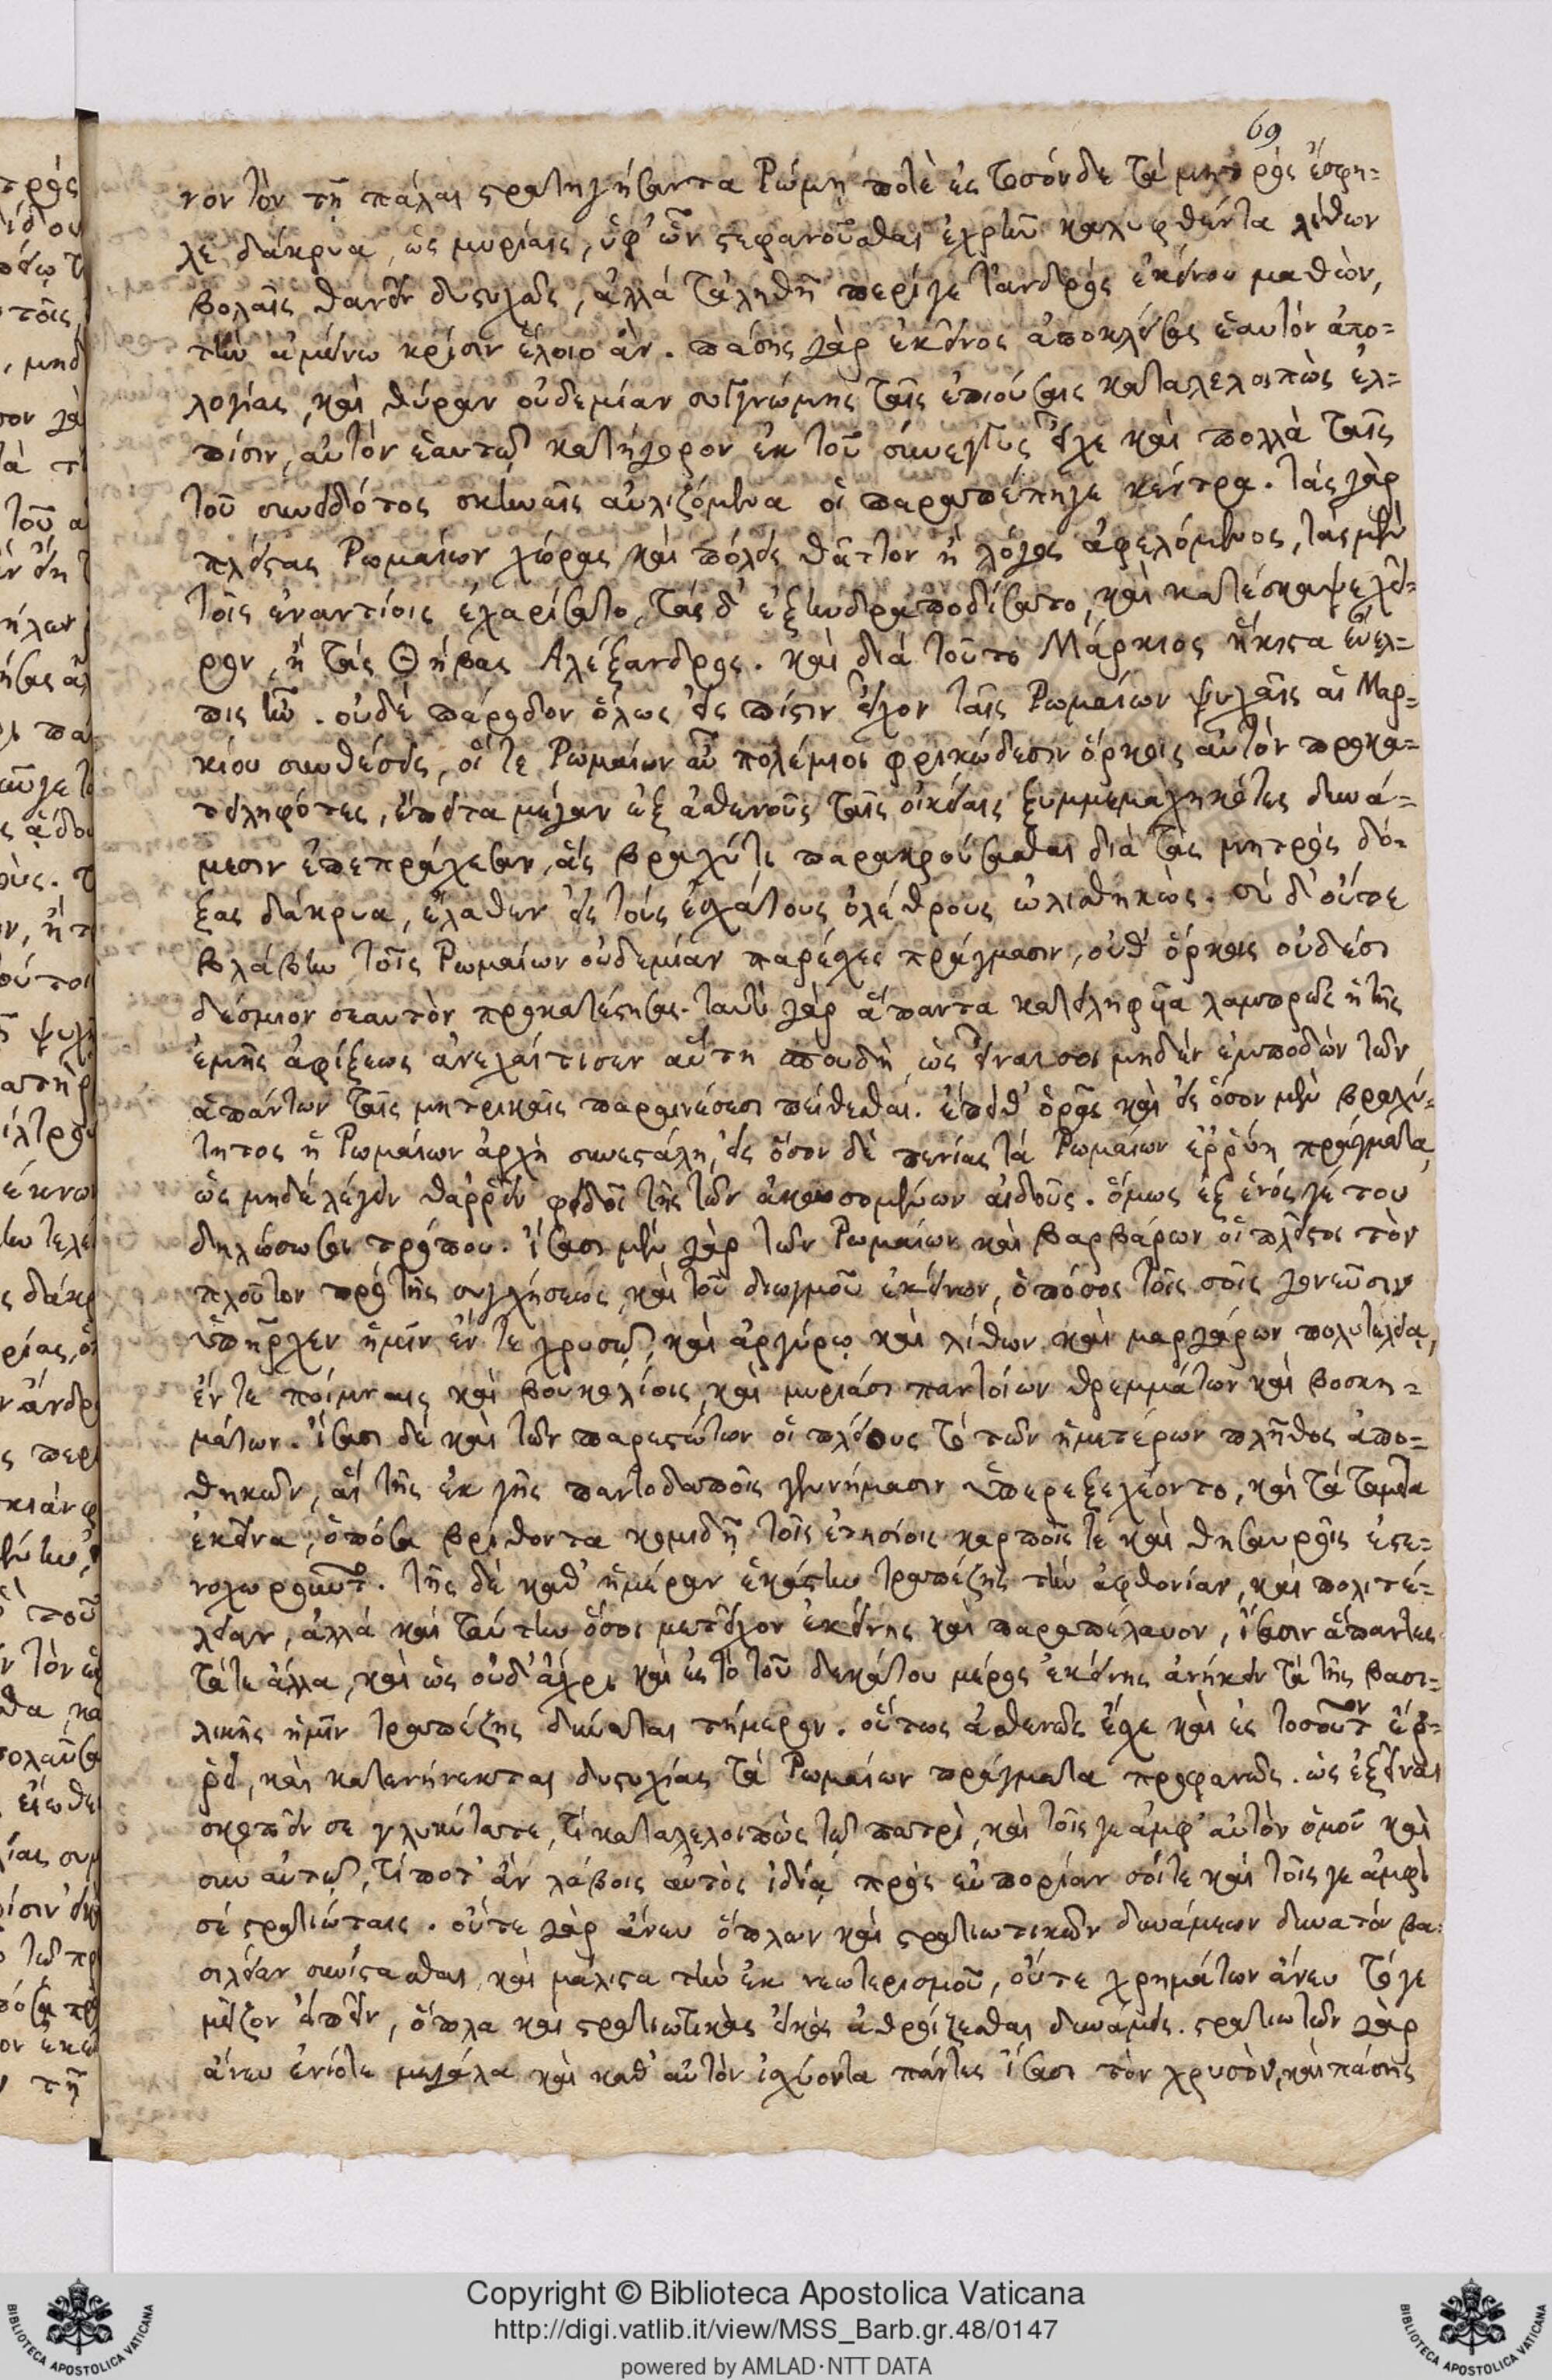 69
νον τὸν τῇ πάλαι στρατηγήσαντα Ρώμῃ ποτὲ ἐς τοσόνδε τὰ μητρὸς ἔσφη-
λε δάκρυα, ὡς μυρίαις, ὑφ' ὧν στεφανοῦσθαι ἐχρῆν καλυφθέντα λίθων
βολαῖς θανεῖν δυστυχῶς, ἀλλὰ τἀληθῆ περί γε τἀνδρὸς ἐκείνου μαθὼν,
τὴν ἀμείνω κρίσιν ἕλοιο ἄν. πάσης γὰρ ἐκεῖνος ἀποκλείσας ἑαυτὸν ἀπο-
λογίας, καὶ θύραν οὐδεμίαν συγγνώμης ταῖς ἐπιούσαις καταλελοιπὼς ἐλ-
πίσιν, αὐτὸν ἑαυτῷ κατήγορον ἐκ τοῦ σύνεγγυς εἶχε καὶ πολλὰ ταῖς
τοῦ συνειδότος σκηναῖς αὐλιζόμενα οἱ παραπέπηγε κέντρα. τὰς γὰρ
πλείστας Ρωμαίων χώρας καὶ πόλεις θᾶττον ἢ λόγος ἀφελόμενος, τὰς μὲν
τοῖς ἐναντίοις ἐχαρίσατο, τὰς δ' ἐξηνδραποδίσατο, καὶ κατέσκαψε χεῖ-
ρον, ἢ τὰς Θήβας Αλέξανδρος. καὶ διὰ τοῦτο Μάρκιος ἥκιστα εὔελ-
πις ἦν. οὐδὲ πάροδον ὅλως εἰς πίστιν εἶχον ταῖς Ρωμαίων ψυχαῖς αἱ Μαρ-
κίου συνθέσεις, οἵ τε Ρωμαίων αὖ πολέμιοι φρικώδεσιν ὅρκοις αὐτὸν προκα-
τειληφότες, ἔπειτα μέγαν ἐξ ἀσθενοῦς ταῖς οἰκείαις ξυμμεμαχηκότες δυνά-
μεσιν ἐπεπράχεσαν, ἃς βραχύ τι παρακρούσασθαι διὰ τὰς μητρὸς δό-
ξας δάκρυα, ἔλαθεν εἰς τοὺς ἐσχάτους ὀλέθρους ὠλισθηκώς. σὺ δ' οὔτε
βλάβην τοῖς Ρωμαίων οὐδεμίαν παρέσχες πράγμασιν, οὔθ' ὅρκοις οὐδέσι
δέσμιον σεαυτὸν προκατέστησας. ταυτὶ γὰρ ἅπαντα κατειληφυῖα λαμπρῶς ἡ τῆς
ἐμῆς ἀφίξεως ἀνεχαίτισεν αὕτη σπουδὴ, ὡς εἶναι σοι μηδὲν ἐμποδὼν τῶν
ἁπάντων ταῖς μητρικαῖς παραινέσεσι πείθεσθαι. ἔπειθ' ὁρᾷς καὶ εἰς ὅσον μὲν βραχύ-
τητος ἡ Ρωμαίων ἀρχὴ συνεστάλη, εἰς ὅσον δὲ πενίας τὰ Ρωμαίων ἐρρύη πράγματα,
ὡς μηδὲ λέγειν θαρρεῖν φειδοῖ τῆς τῶν ἀκουσομένων αἰδοῦς. ὅμως ἐξ ἑνός γέ του
δηλώσω σοι τρόπου. ἴσασι μὲν γὰρ τῶν Ρωμαίων καὶ βαρβάρων οἱ πλεῖστοι τὸν
πλοῦτον πρὸ τῆς συγχύσεως, καὶ τοῦ διωγμοῦ ἐκείνων, ὁπόσος τοῖς σοῖς γονεῦσιν
ὑπῆρχεν ἡμῖν ἔν τε χρυσῷ, καὶ ἀργύρῳ καὶ λίθων καὶ μαργάρων πολυτελείᾳ,
ἔν τε ποίμναις καὶ βουκολίοις, καὶ μυριάσι παντοίων θρεμμάτων καὶ βοσκη-
μάτων. ἴσασι δὲ καὶ τῶν παρεστώτων οἱ πλείους τὸ τῶν ἡμετέρων πλῆθος ἀπο-
θηκῶν, αἳ τῆς ἐκ γῆς παντοδαποῖς γεννήμασιν ὑπερεξεχέοντο, καὶ τὰ ταμεῖα
ἐκεῖνα, ὁπόσα βρίθοντα κομιδῇ τοῖς ἐτησίοις καρποῖς τε καὶ θησαυροῖς ἐστε-
νοχωροῦντο. τῆς δὲ καθ' ἡμέραν ἑκάστην τραπέζης τὴν ἀφθονίαν, καὶ πολιτέ-
λειαν, ἀλλὰ καὶ ταύτην ὅσοι μετεῖχον ἐκείνης καὶ παραπέλαυον, ἴσασιν ἅπαντες
τά τε ἄλλα, καὶ ὡς οὐδ' ἄχρι καὶ ἐς τὸ τοῦ δεκάτου μέρος ἐκείνης ἀνήκειν τὰ τῆς βασι-
λικῆς ἡμῖν τραπέζης δύναται τήμερον. οὕτως ἀσθενῶς ἔχε καὶ ἐς τοσοῦτον ἔρ-
ρει, καὶ κατενήνεκται δυστυχίας τὰ Ρωμαίων πράγματα προφανῶς. ὡς ἐξεῖναι
σκοπεῖν σε γλυκύτατε, τί καταλελοιπὼς τῷ πατρὶ, καὶ τοῖς γε ἀμφ' αὐτὸν ὁμοῦ καὶ
σὺν αὐτῷ, τί ποτ' ἂν λάβοις αὐτὸς ἰδίᾳ πρὸς εὐπορίαν σοί τε καὶ τοῖς γε ἀμφὶ
σὲ στρατιώταις. οὔτε γὰρ ἄνευ ὅπλων καὶ στρατιωτικῶν δυνάμεων δυνατὸν βα-
σιλείαν συνίστασθαι, καὶ μάλιστα τὴν ἐκ νεωτερισμοῦ, οὔτε χρημάτων ἄνευ τό γε
μεῖζον εἰπεῖν, ὅπλα καὶ στρατιωτικὰς εἰκὸς ἀθροίζεσθαι δυνάμεις. στρατιωτῶν γὰρ
ἄνευ ἐνίοτε μεγάλα καὶ καθ' αὑτὸν ἰσχύοντα πάντες ἴσασι τὸν χρυσὸν, καὶ πάσης
Copyright © Biblioteca Apostolica Vaticana
http://digi.vatlib.it/view/MSS_Barb.gr.48/0147
powered by AMLAD·NTT DATA